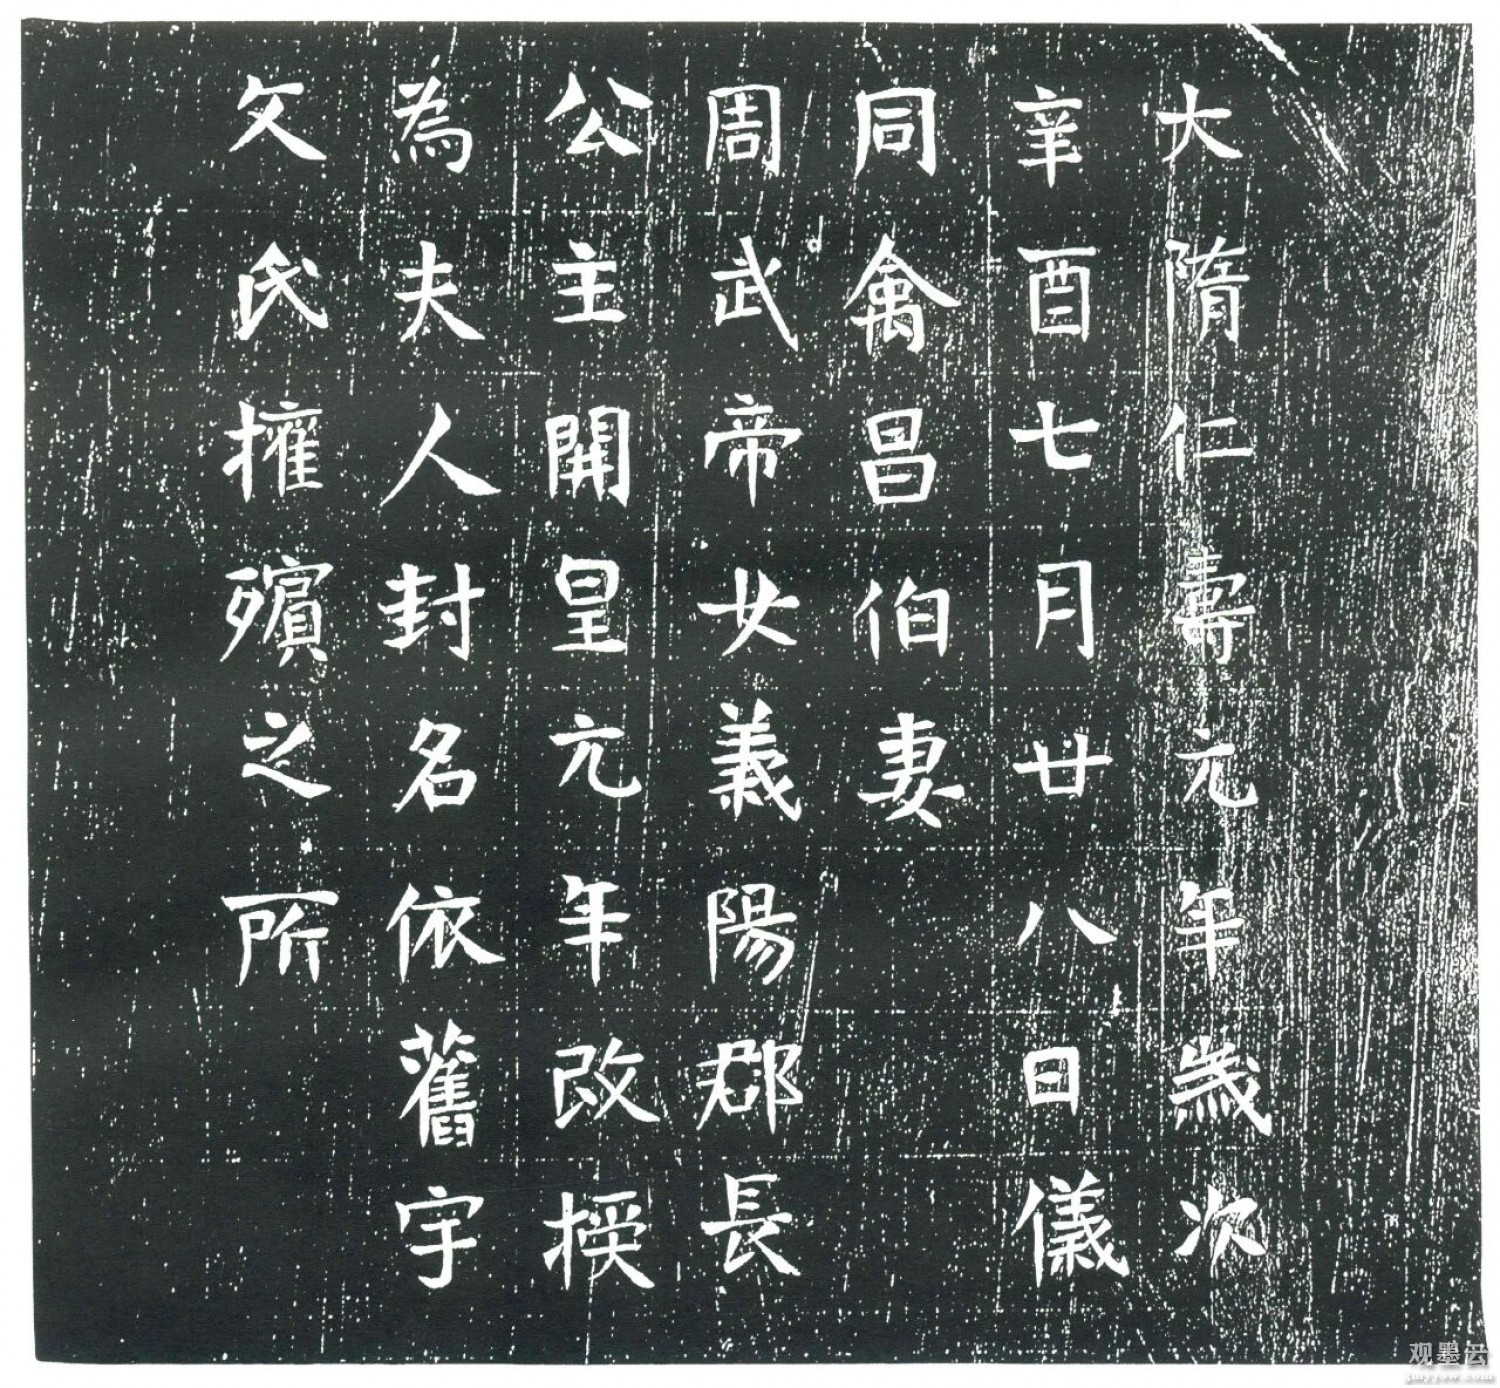 大隋仁壽元年歲次
辛酉七月廿八日儀
同禽昌伯妻
周武帝女義陽郡長
公主開皇元年改授
為夫人封名依舊宇
文氏擁殯之所
观墨云